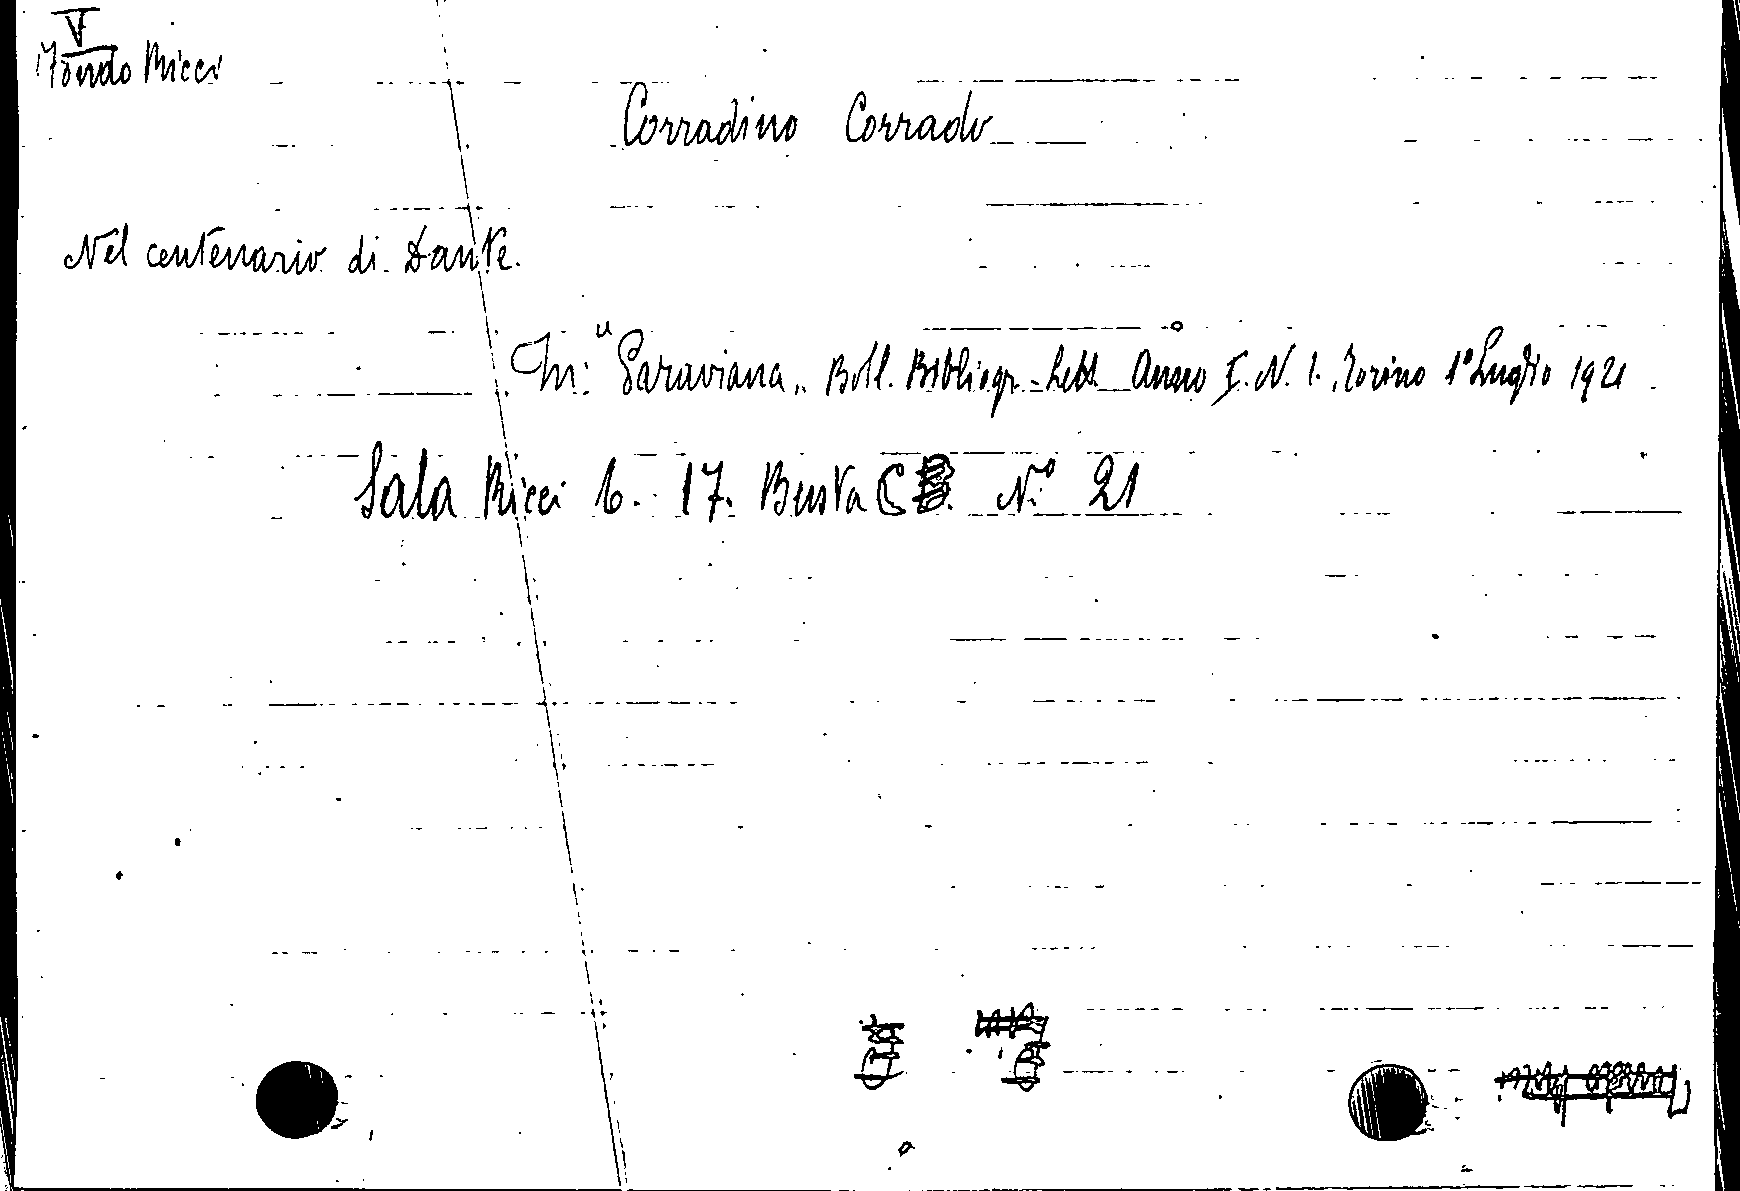 V
Fondo Ricci
Corradino Corrado
Nel centenario di Dante.
In: "Paraviana„ Boll. Bibliogr. Lett. Anno I. N. 1. Torino 1° Luglio 1921
Sala Ricci 6. 17. Busta C N.° 21